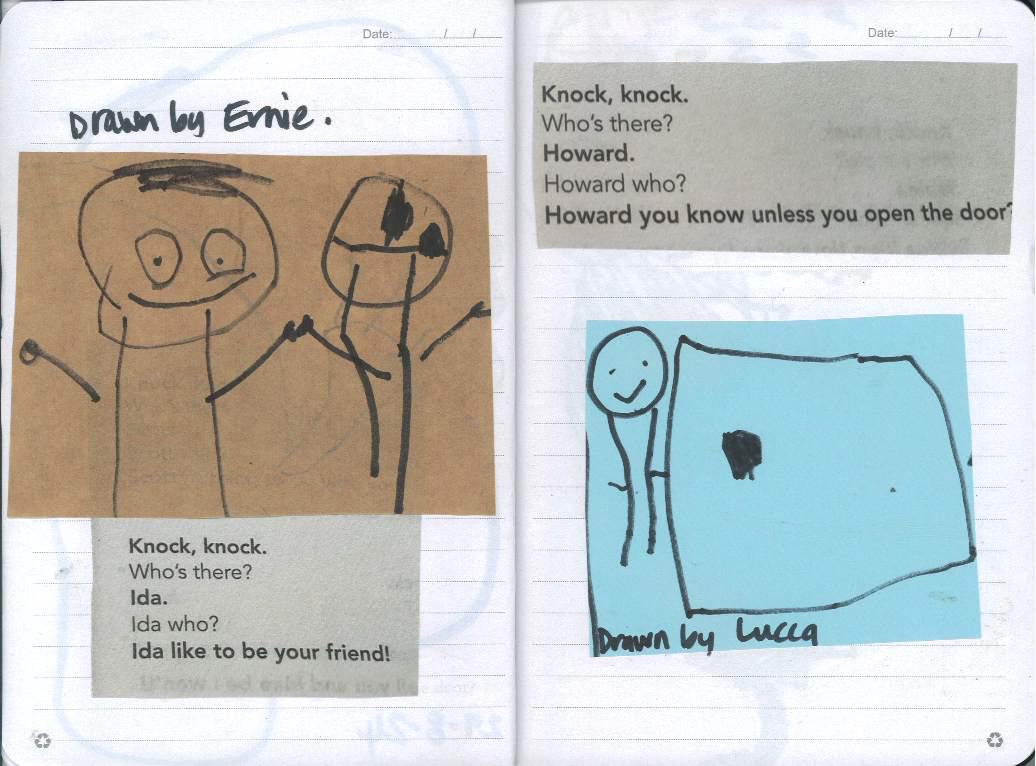 Date: / /
Drawn by Ernie.
Knock, knock.
Who's there?
Ida.
Ida who?
Ida like to be your friend!
Date: / /
Knock, knock.
Who's there?
Howard.
Howard who?
Howard you know unless you open the door?
Drawn by Lucca